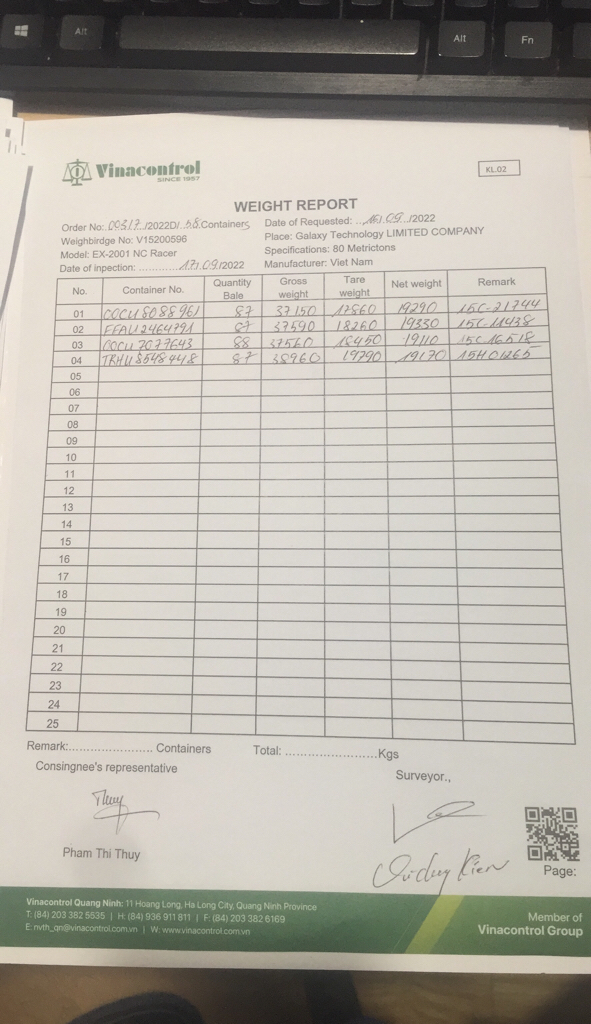 Alt
Alt
Fn
Vinacontrol
SINCE 1957
KL.02
WEIGHT REPORT
Order No: 00317/2022D/ 58 Containers
Date of Requested: .../09/2022
Weighbirdge No: V15200596
Place: Galaxy Technology LIMITED COMPANY
Model: EX-2001 NC Racer
Specifications: 80 Metrictons
Date of inpection: ............17/09/2022
Manufacturer: Viet Nam
No. Container No. Quantity Bale Gross weight Tare weight Net weight Remark
01 COCU8088961 87 37150 17860 19290 15C-21744
02 FFAU2464791 87 37590 18260 19330 15C-11438
03 OOCU7077643 88 37560 18450 19110 15C16518
04 TRHU8548448 87 38960 19790 19170 15H01265
05
06
07
08
09
10
11
12
13
14
15
16
17
18
19
20
21
22
23
24
25
Remark:........................ Containers Total: ..........................Kgs
Consingnee's representative
Surveyor.,
Thuy
Pham Thi Thuy
Kien
Page:
Vinacontrol Quang Ninh: 11 Hoang Long, Ha Long City, Quang Ninh Province
T: (84) 203 382 5535 | H: (84) 936 911 811 | F: (84) 203 382 6169
E: nvth_qn@vinacontrol.com.vn | W: www.vinacontrol.com.vn
Member of
Vinacontrol Group